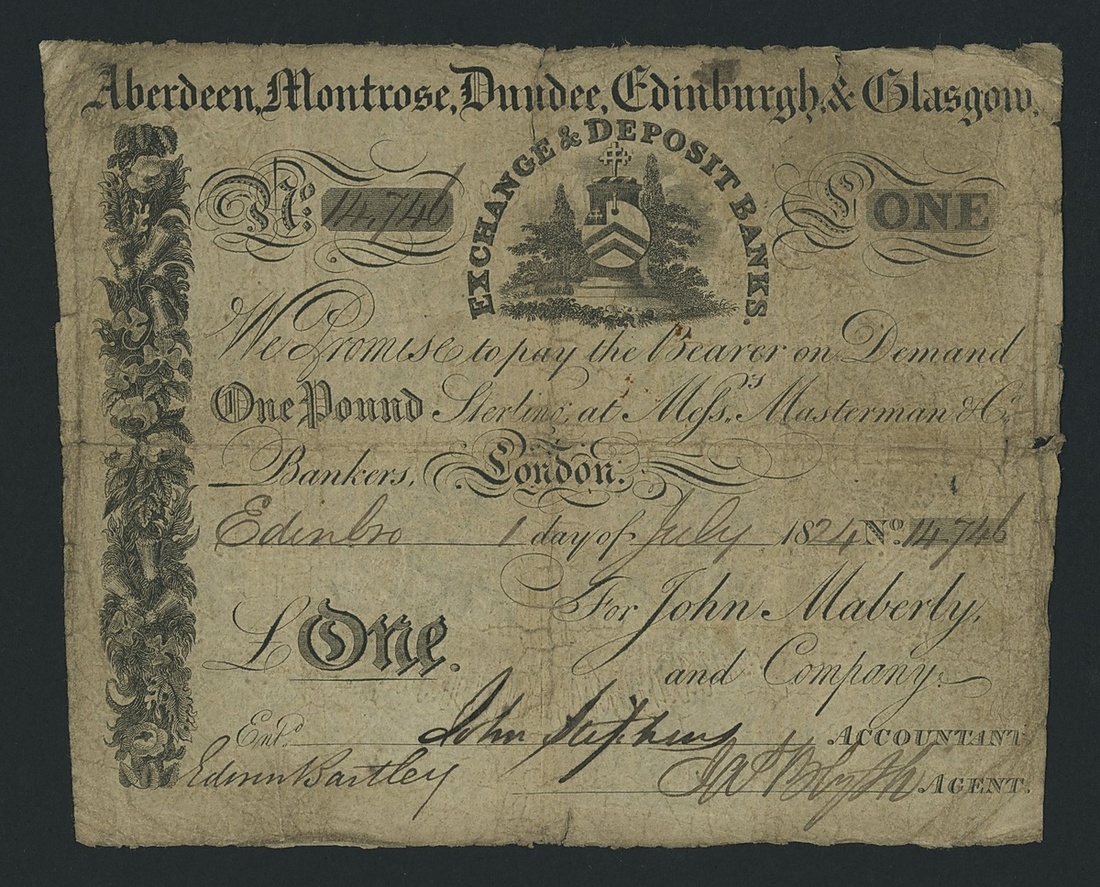 Aberdeen, Montrose, Dundee, Edinburgh, & Glasgow.
EXCHANGE & DEPOSIT BANKS.
No. 14,746
£ ONE
We Promise to pay the Bearer on Demand
One Pound Sterling, at Messrs. Masterman & Co.
Bankers, London.
Edinbro 1 day of July 1824 No. 14746
For John Maberly,
and Company.
£ One.
Entd. John Stephens ACCOUNTANT
Edwin Bartley AGENT.